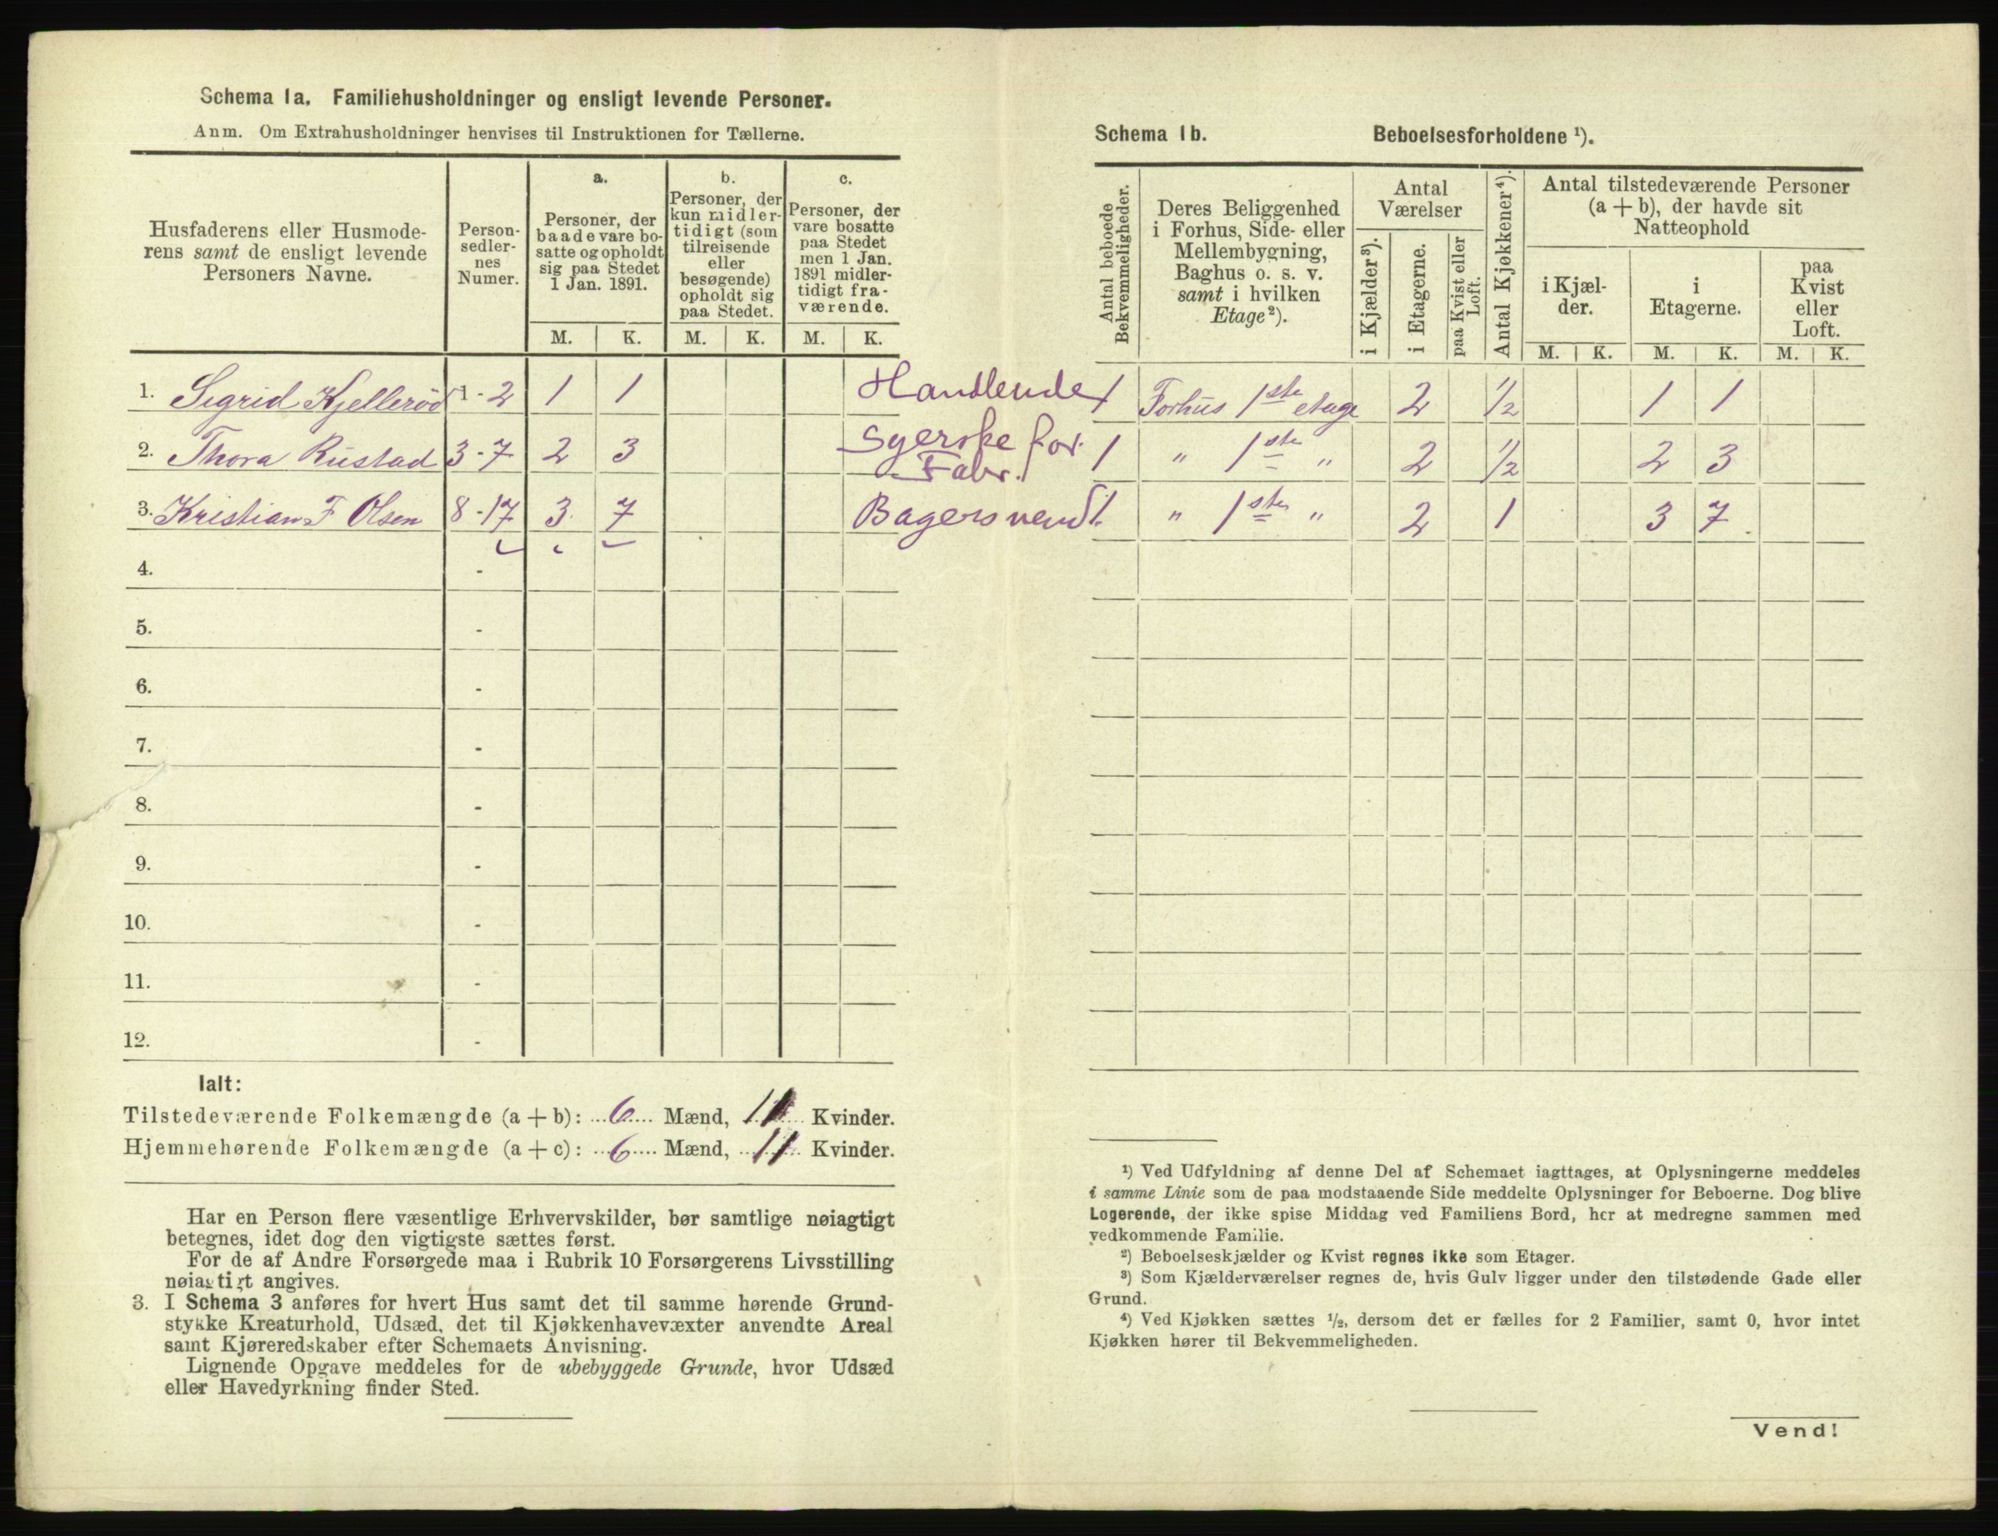 Schema 1a. Familiehusholdninger og ensligt levende Personer.
Anm. Om Extrahusholdninger henvises til Instruktionen for Tællerne.
Husfaderens eller Husmode-
rens samt de ensligt levende
Personers Navne.
Person-
sedler-
nes
Numer.
a.
Personer, der
baade vare bo-
satte og opholdt
sig paa Stedet
1 Jan. 1891.
b.
Personer, der
kun midler-
tidigt (som
tilreisende
eller
besøgende)
opholdt sig
paa Stedet.
c.
Personer, der
vare bosatte
paa Stedet
men 1 Jan.
1891 midler-
tidigt fra-
værende.
M. K. M. K. M. K.
1. Sigrid Kjellerød 1-2 1 1 Handlende
2. Thora Rustad 3-7 2 3 Syerske for Fabr.
3. Kristian F Olsen 8-17 3 7 Bagersvend
4. -
5. -
6. -
7. -
8. -
9. -
10. -
11. -
12. -
Ialt:
Tilstedeværende Folkemængde (a+b): 6 Mænd, 11 Kvinder.
Hjemmehørende Folkemængde (a+c): 6 Mænd, 11 Kvinder.
Har en Person flere væsentlige Erhvervskilder, bør samtlige nøiagtigt
betegnes, idet dog den vigtigste sættes først.
For de af Andre Forsørgede maa i Rubrik 10 Forsørgerens Livsstilling
nøiagtigt angives.
3. I Schema 3 anføres for hvert Hus samt det til samme hørende Grund-
stykke Kreaturhold, Udsæd, det til Kjøkkenhavevæxter anvendte Areal
samt Kjøreredskaber efter Schemaets Anvisning.
Lignende Opgave meddeles for de ubebyggede Grunde, hvor Udsæd
eller Havedyrkning finder Sted.
Schema 1b. Beboelsesforholdene ¹).
Antal beboede
Bekvemmeligheder.
Deres Beliggenhed
i Forhus, Side- eller
Mellembygning,
Baghus o. s. v.
samt i hvilken
Etage²).
Antal
Værelser
i Kjælder³).
i Etagerne.
paa Kvist eller
Loft.
Antal Kjøkkener⁴).
Antal tilstedeværende Personer
(a + b), der havde sit
Natteophold
i Kjæl-
der.
i
Etagerne.
paa
Kvist
eller
Loft.
M. K. M. K. M. K.
1 Forhus 1ste etage 2 1/2 1 1
1 " 1ste " 2 1/2 2 3
1. " 1ste " 2 1 3 7
¹) Ved Udfyldning af denne Del af Schemaet iagttages, at Oplysningerne meddeles
i samme Linie som de paa modstaaende Side meddelte Oplysninger for Beboerne. Dog blive
Logerende, der ikke spise Middag ved Familiens Bord, her at medregne sammen med
vedkommende Familie.
²) Beboelseskjælder og Kvist regnes ikke som Etager.
³) Som Kjælderværelser regnes de, hvis Gulv ligger under den tilstødende Gade eller
Grund.
⁴) Ved Kjøkken sættes ½, dersom det er fælles for 2 Familier, samt 0, hvor intet
Kjøkken hører til Bekvemmeligheden.
Vend!